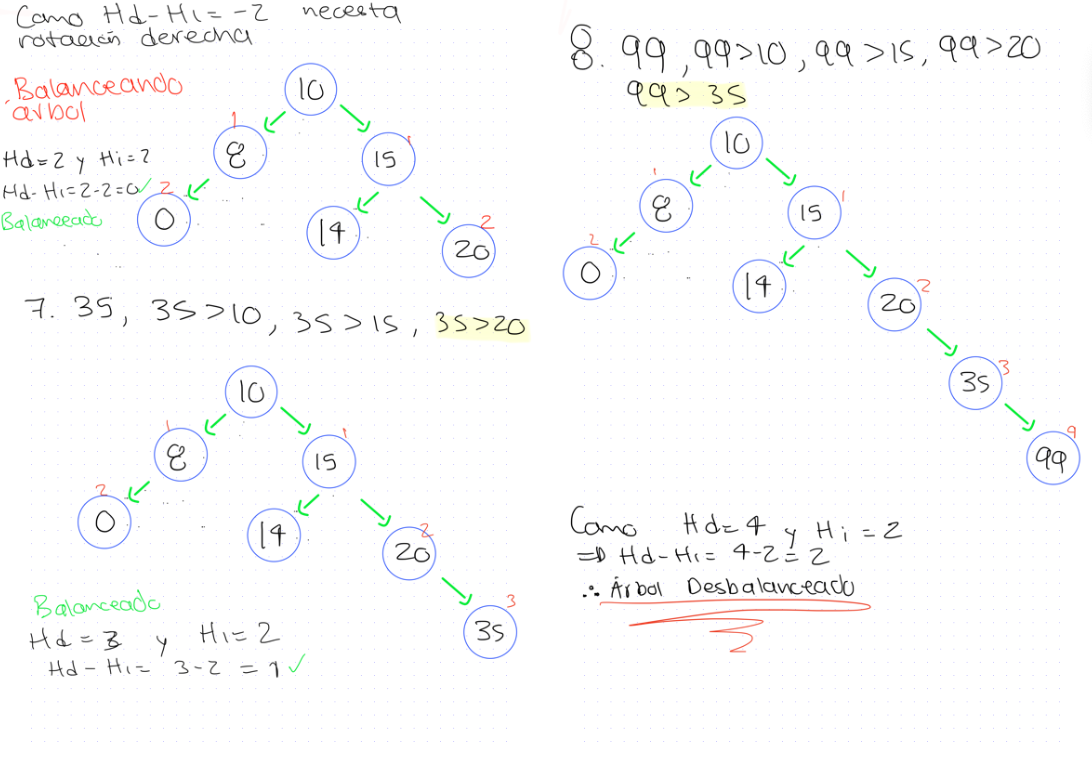 Como Hd-Hi=-2 necesita
rotación derecha
Balanceando
árbol
10
1
8
1
15
Hd=2 y Hi=2
Hd-Hi=2-2=0✓
Balanceado
2
0
14
2
20
7. 35, 35>10, 35>15, 35>20
10
1
8
1
15
2
0
14
2
20
3
35
Balanceado
Hd=3 y Hi=2
Hd-Hi= 3-2 = 1✓
8. 99, 99>10, 99>15, 99>20
99>35
10
1
8
1
15
2
0
14
2
20
3
35
99
Como Hd=4 y Hi=2
=> Hd-Hi= 4-2=2
∴ Árbol Desbalanceado